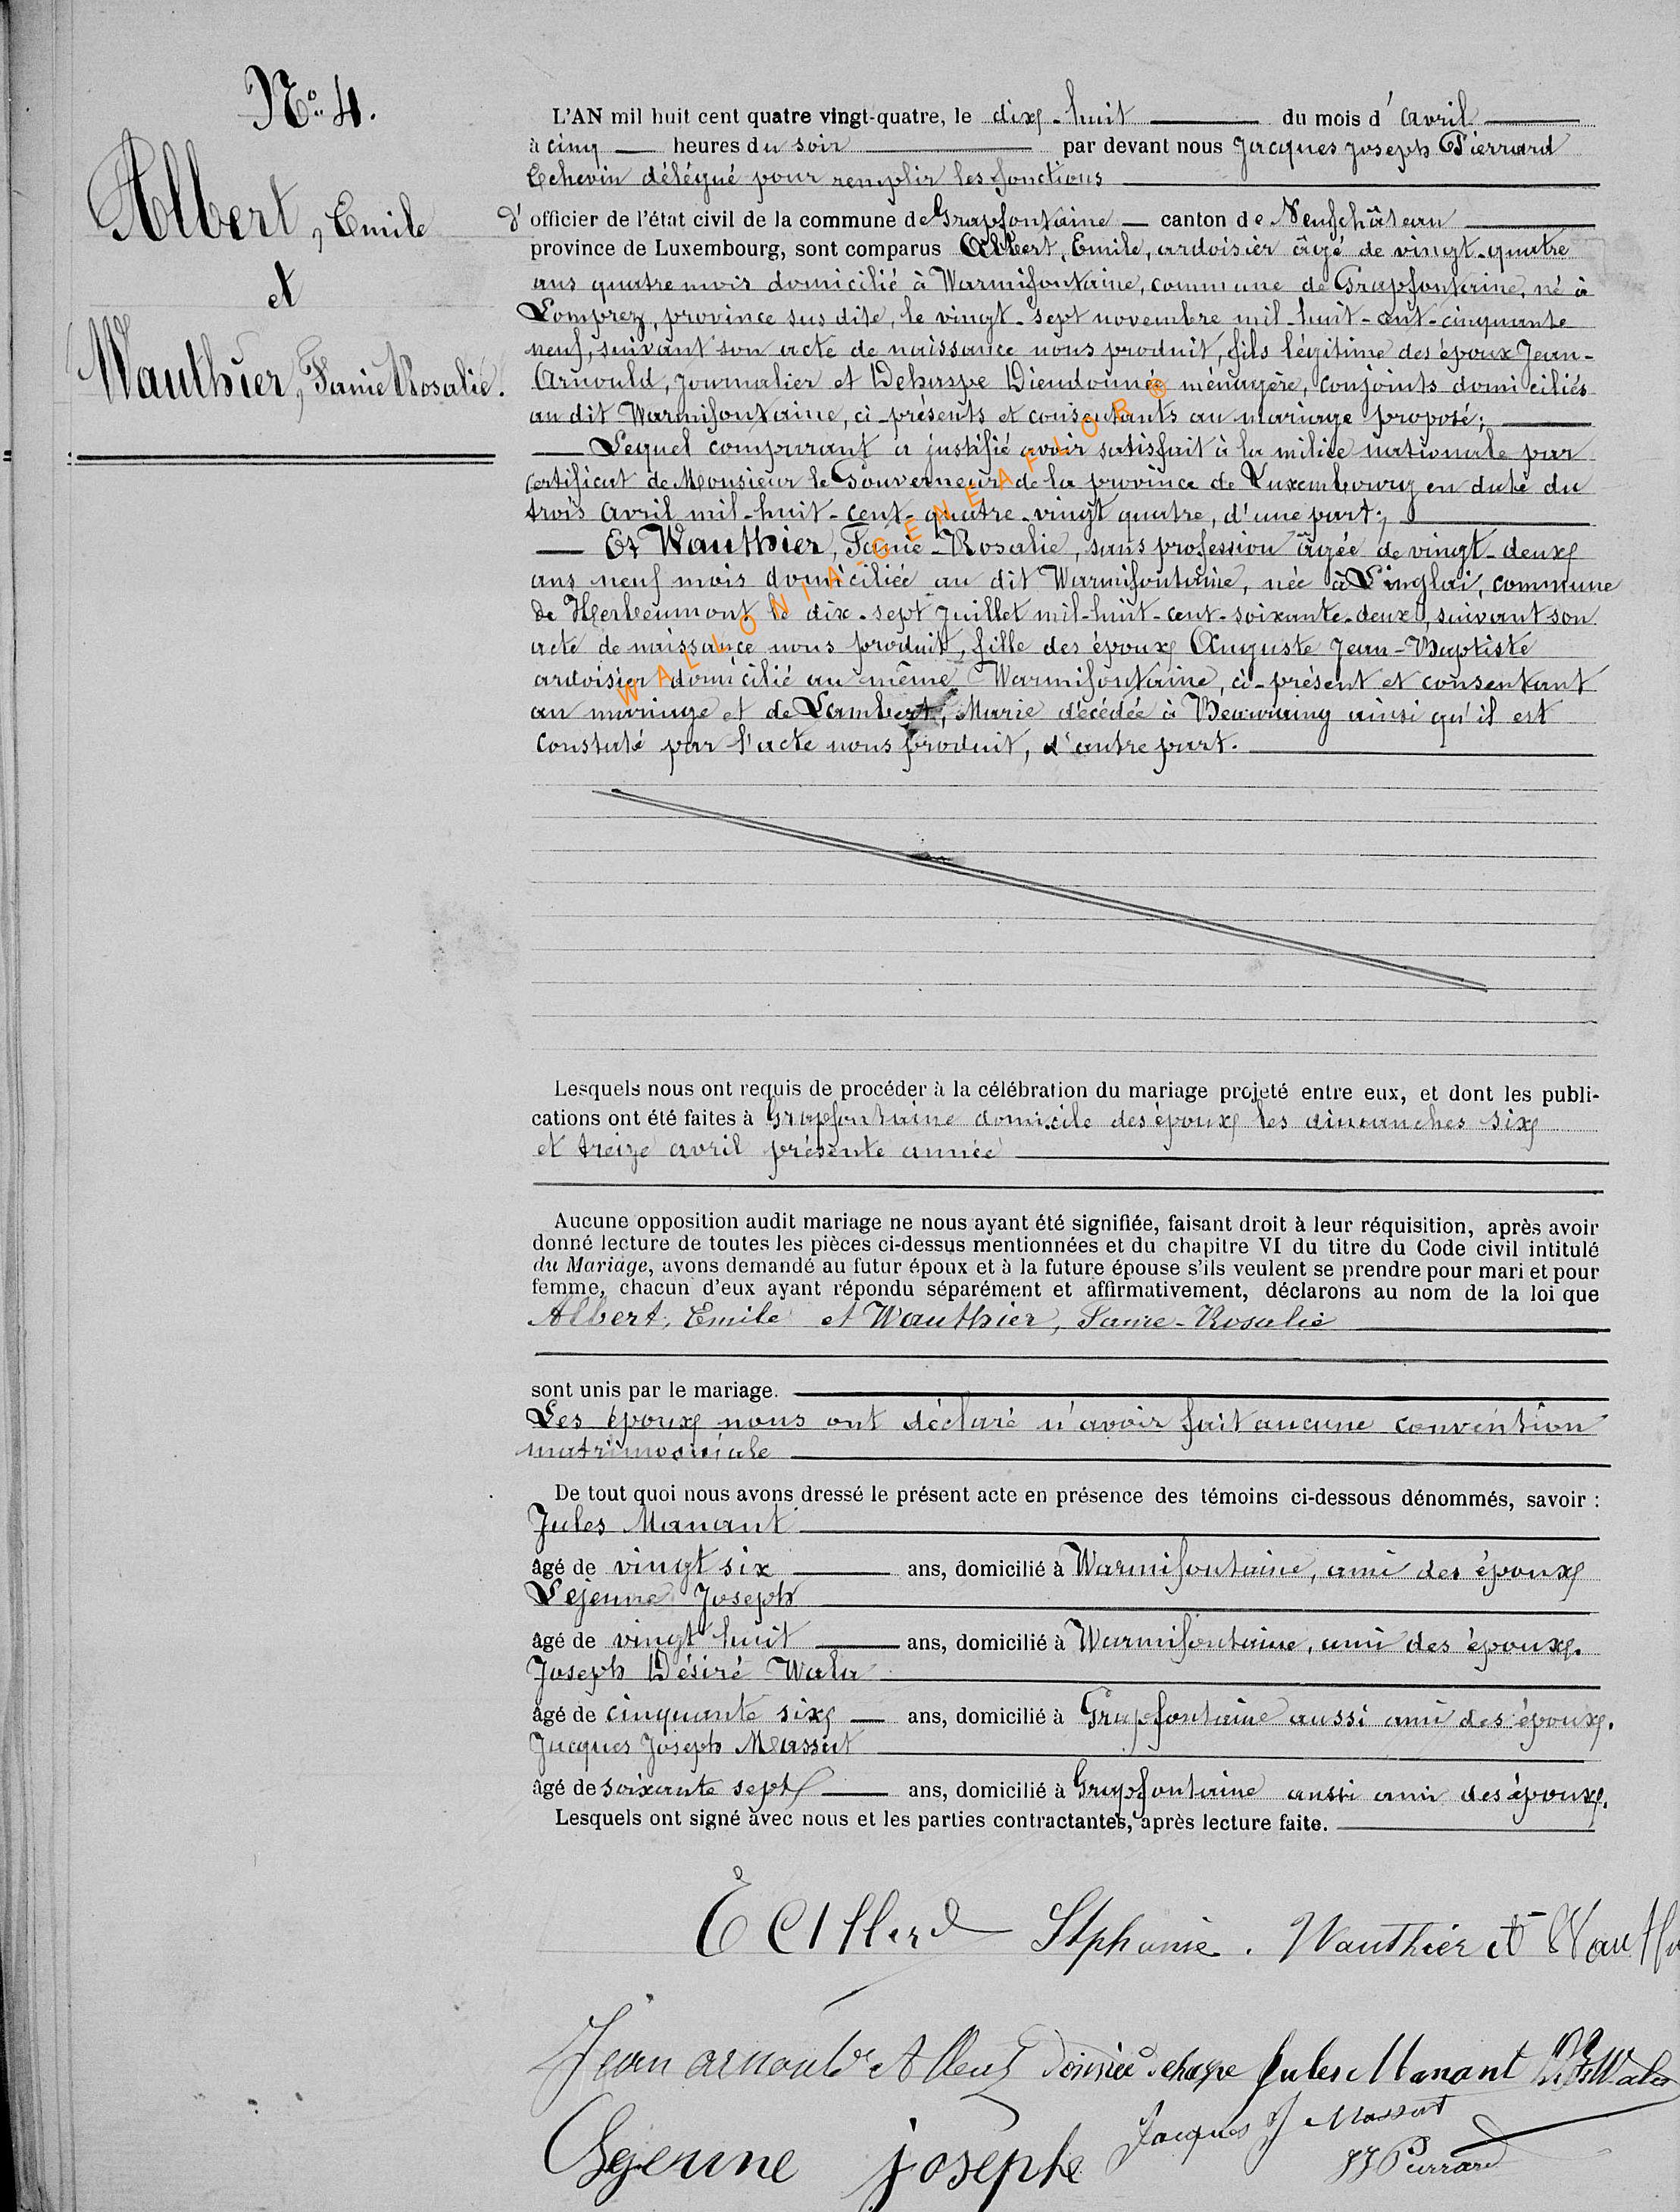 N° 4.
Albert, Emile
et
Wauthier, Fanie Rosalie.
L'AN mil huit cent quatre vingt-quatre, le dix-huit du mois d'avril
à cinq heures du soir par devant nous Jacques Joseph Pierrard
Echevin délégué pour remplir les fonctions
d'officier de l'état civil de la commune de Grapfontaine canton de Neufchâteau
province de Luxembourg, sont comparus Albert, Emile, ardoisier âgé de vingt-quatre
ans quatre mois domicilié à Warmifontaine, commune de Grapfontaine, né à
Lomprez, province sus dite, le vingt-sept novembre mil-huit-cent-cinquante
neuf, suivant son acte de naissance nous produit, fils légitime des époux Jean-
Arnould, Journalier et Dehaspe Dieudonnée ménagère, conjoints domiciliés
au dit Warmifontaine, ci-présents et consentants au mariage proposé;
Lequel comparant a justifié avoir satisfait à la milice nationale par
certificat de Monsieur le Gouverneur de la province de Luxembourg en date du
trois avril mil-huit-cent-quatre-vingt quatre, d'une part;
Et Wauthier, Fanie-Rosalie, sans profession âgée de vingt-deux
ans neuf mois domiciliée au dit Warmifontaine, née à Linglai, commune
de Herbeumont le dix-sept Juillet mil-huit-cent-soixante-deux, suivant son
acte de naissance nous produit, fille des époux Auguste Jean-Baptiste
ardoisier domicilié au même Warmifontaine, ci-présent et consentant
au mariage et de Lambert, Marie décédée à Beauraing ainsi qu'il est
constaté par l'acte nous produit, d'autre part.
WALLONIA-GENEAFLOR ®
Lesquels nous ont requis de procéder à la célébration du mariage projeté entre eux, et dont les publi-
cations ont été faites à Grapfontaine domicile des époux les dimanches six
et treize avril présente année
Aucune opposition audit mariage ne nous ayant été signifiée, faisant droit à leur réquisition, après avoir
donné lecture de toutes les pièces ci-dessus mentionnées et du chapitre VI du titre du Code civil intitulé
du Mariage, avons demandé au futur époux et à la future épouse s'ils veulent se prendre pour mari et pour
femme, chacun d'eux ayant répondu séparément et affirmativement, déclarons au nom de la loi que
Albert, Emile et Wauthier, Fanie-Rosalie
sont unis par le mariage.
Les époux nous ont déclaré n'avoir fait aucune convention
matrimoniale
De tout quoi nous avons dressé le présent acte en présence des témoins ci-dessous dénommés, savoir :
Jules Manant
âgé de vingt six ans, domicilié à Warmifontaine, ami des époux
Lejeune Joseph
âgé de vingt huit ans, domicilié à Warmifontaine, ami des époux.
Joseph Désiré Wala
âgé de cinquante six ans, domicilié à Grapfontaine aussi ami des époux.
Jacques Joseph Massut
âgé de soixante sept ans, domicilié à Grapfontaine aussi ami des époux.
Lesquels ont signé avec nous et les parties contractantes, après lecture faite.
E Albert Stphanie. Wauthier
Jean arnould Albert Jules Manant
Jacques J Massut
Lejeune josephe JJ Pierrard